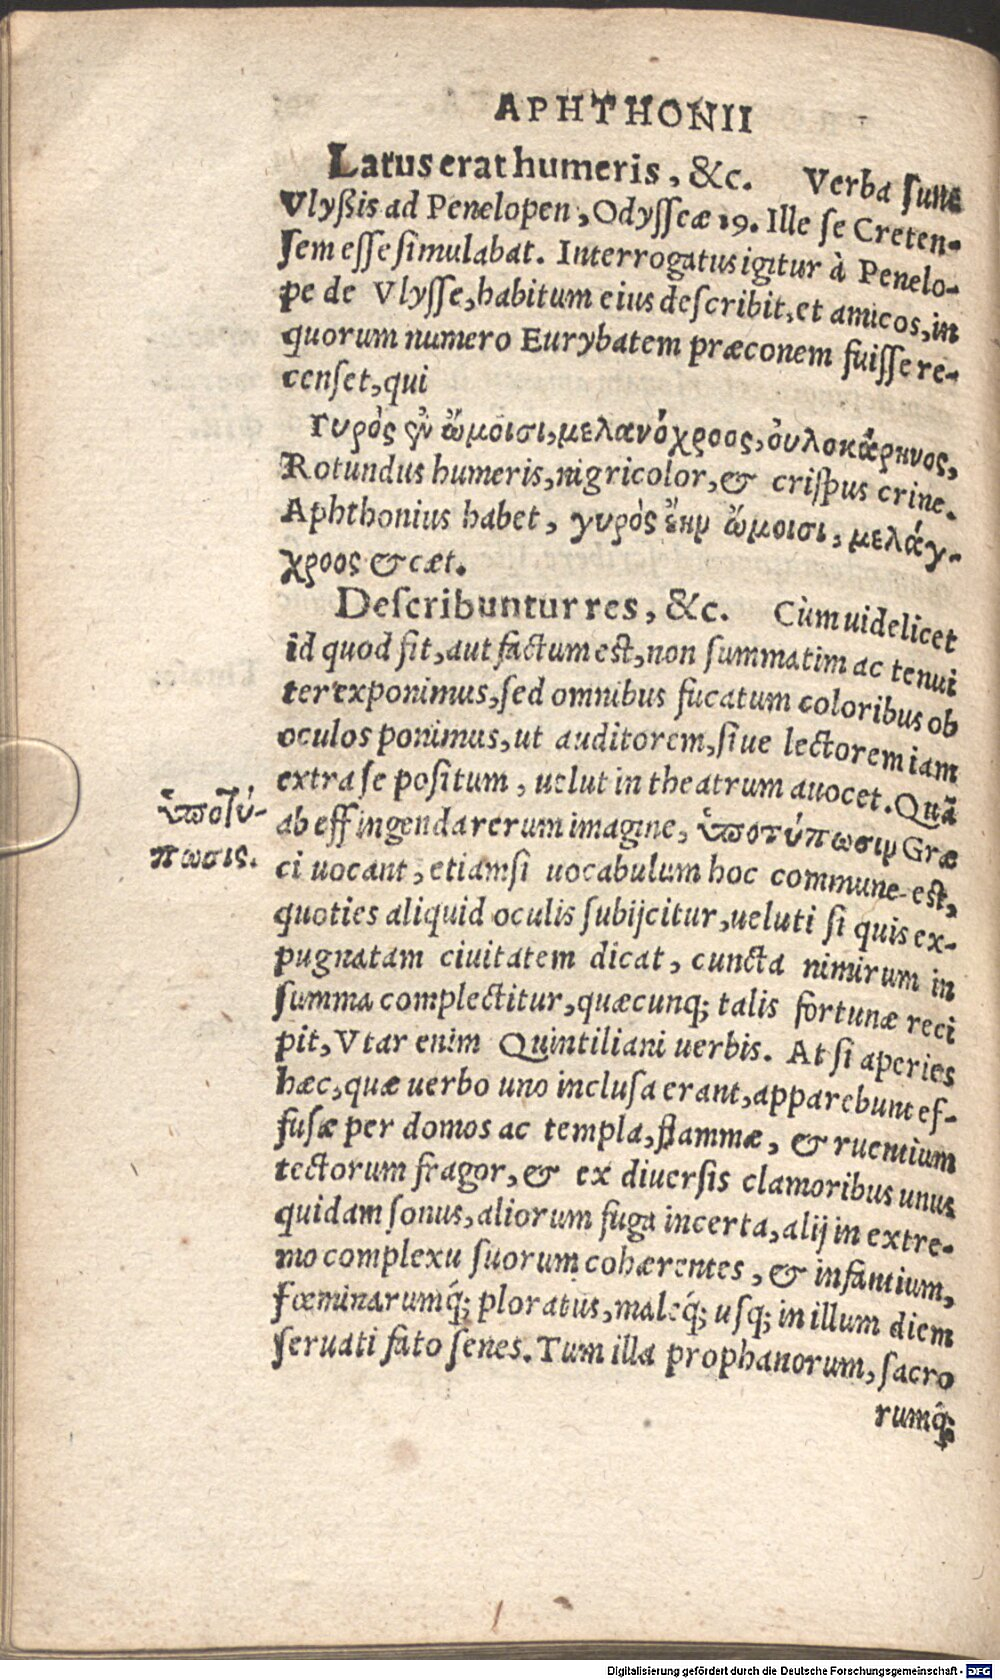 APHTHONII
Latus erat humeris, &c. Verba sunt
Vlyßis ad Penelopen, Odysseæ 19. Ille se Creten-
sem esse simulabat. Interrogatus igitur à Penelo-
pe de Vlysse, habitum eius describit, et amicos, in
quorum numero Eurybatem præconem fuisse re-
censet, qui
Γυρὸς ἐν ὤμοισι, μελανόχροος, οὐλοκάρηνος,
Rotundus humeris, nigricolor, & crispus crine.
Aphthonius habet, γυρὸς ἔην ὤμοισι, μελάγ-
χροος & cæt.
Describuntur res, &c. Cùm uidelicet
id quod sit, aut factum est, non summatim ac tenui
ter exponimus, sed omnibus fucatum coloribus ob
oculos ponimus, ut auditorem, siue lectorem iam
extra se positum, uelut in theatrum auocet. Quã
ὑποτύ-
πωσις.
ab effingenda rerum imagine, ὑποτύπωσιν Græ
ci uocant, etiamsi uocabulum hoc commune est,
quoties aliquid oculis subijcitur, ueluti si quis ex-
pugnatam ciuitatem dicat, cuncta nimirum in
summa complectitur, quæcunq; talis fortunæ reci
pit, Vtar enim Quintiliani uerbis. At si aperies
hæc, quæ uerbo uno inclusa erant, apparebunt ef-
fusæ per domos ac templa, flammæ, & ruentium
tectorum fragor, & ex diuersis clamoribus unus
quidam sonus, aliorum fuga incerta, alij in extre-
mo complexu suorum cohærentes, & infantium,
fœminarumq́; ploratus, maleq́; usq; in illum diem
seruati fato senes. Tum illa prophanorum, sacro
rumq́;
Digitalisierung gefördert durch die Deutsche Forschungsgemeinschaft - DFG